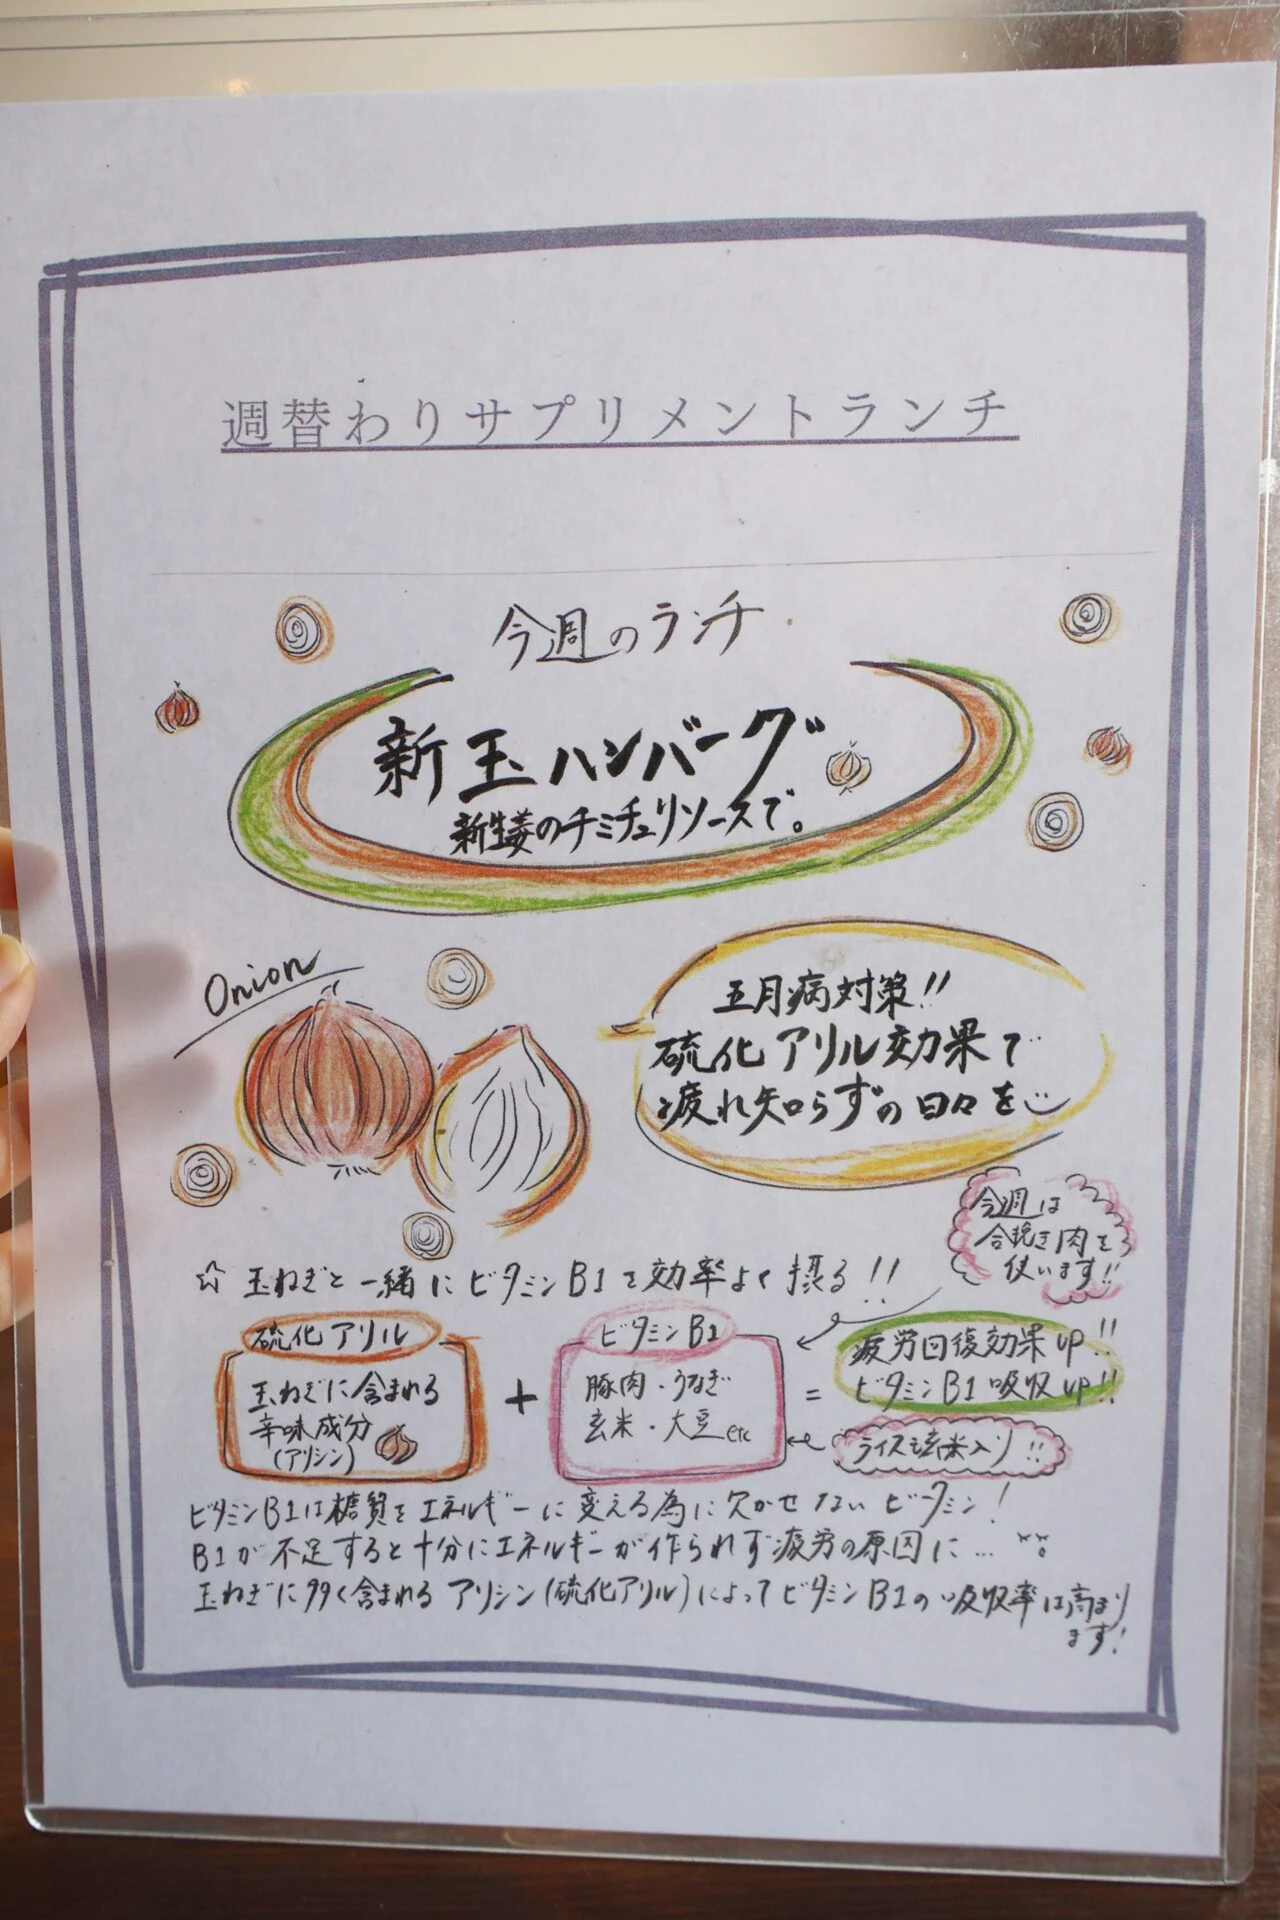 週替わりサプリメントランチ
今週のランチ
新玉ハンバーグ
新生姜のチミチュリソースで。
Onion
五月病対策!!
硫化アリル効果で
疲れ知らずの日々を
今週は
合挽き肉を
使います!!
☆ 玉ねぎと一緒にビタミンB1を効率よく摂る!!
硫化アリル
玉ねぎに含まれる
辛味成分
(アリシン)
+
ビタミンB1
豚肉・うなぎ
玄米・大豆 etc
=
疲労回復効果up!!
ビタミンB1吸収up!!
ライスも玄米入り!!
ビタミンB1は糖質をエネルギーに変える為に欠かせないビタミン!
B1が不足すると十分にエネルギーが作られず疲労の原因に…
玉ねぎに多く含まれるアリシン(硫化アリル)によってビタミンB1の吸収率は高まり
ます!